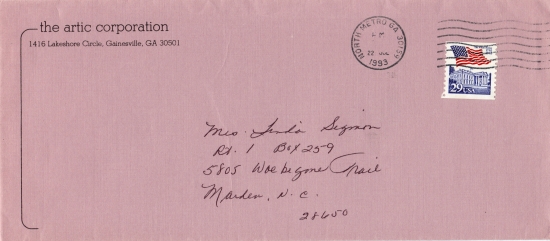 the artic corporation
1416 Lakeshore Circle, Gainesville, GA 30501
NORTH METRO GA 301 99
PM
22 JUL
1993
29 USA
Mrs. Linda Sigmon
Rt. 1 Box 259
5805 Woebegone Trail
Maiden, N.C.
28650